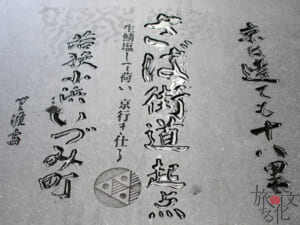 京は遠ても十八里
さば街道起点
生鯖塩して荷い、京行き仕る
若狭小浜いづみ町
旅する文化